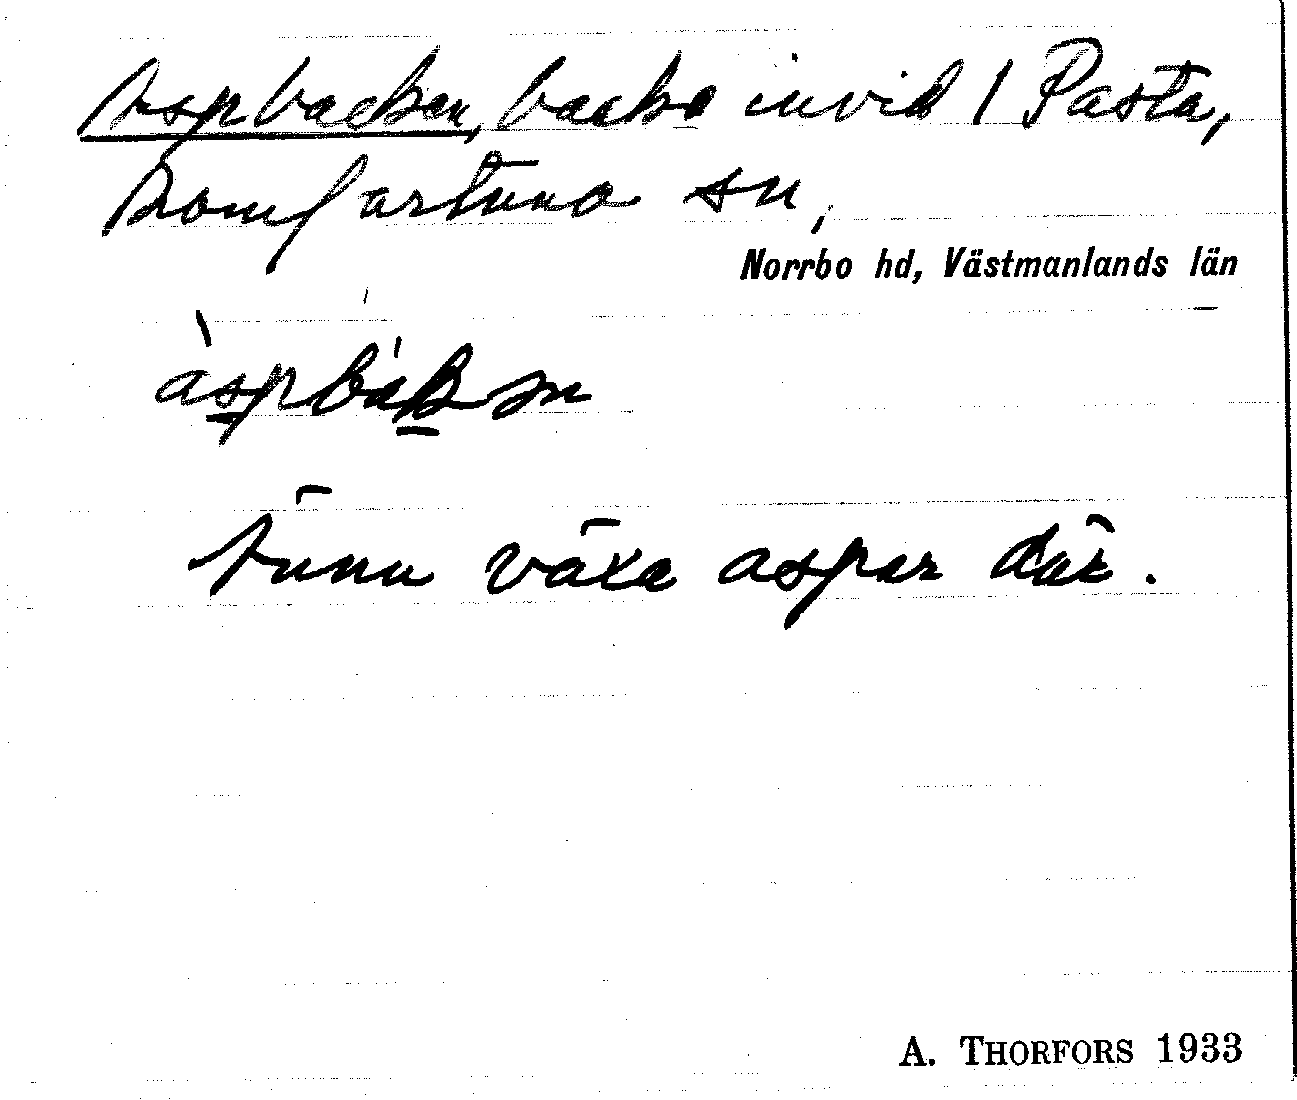 Aspbacken, backe invid 1 Pasta,
Romfartuna sn,
Norrbo hd, Västmanlands län
àspbákən
Ännu växa aspar där.
A. THORFORS 1933